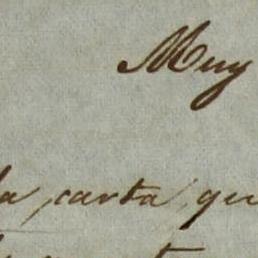 Muy
la carta qu